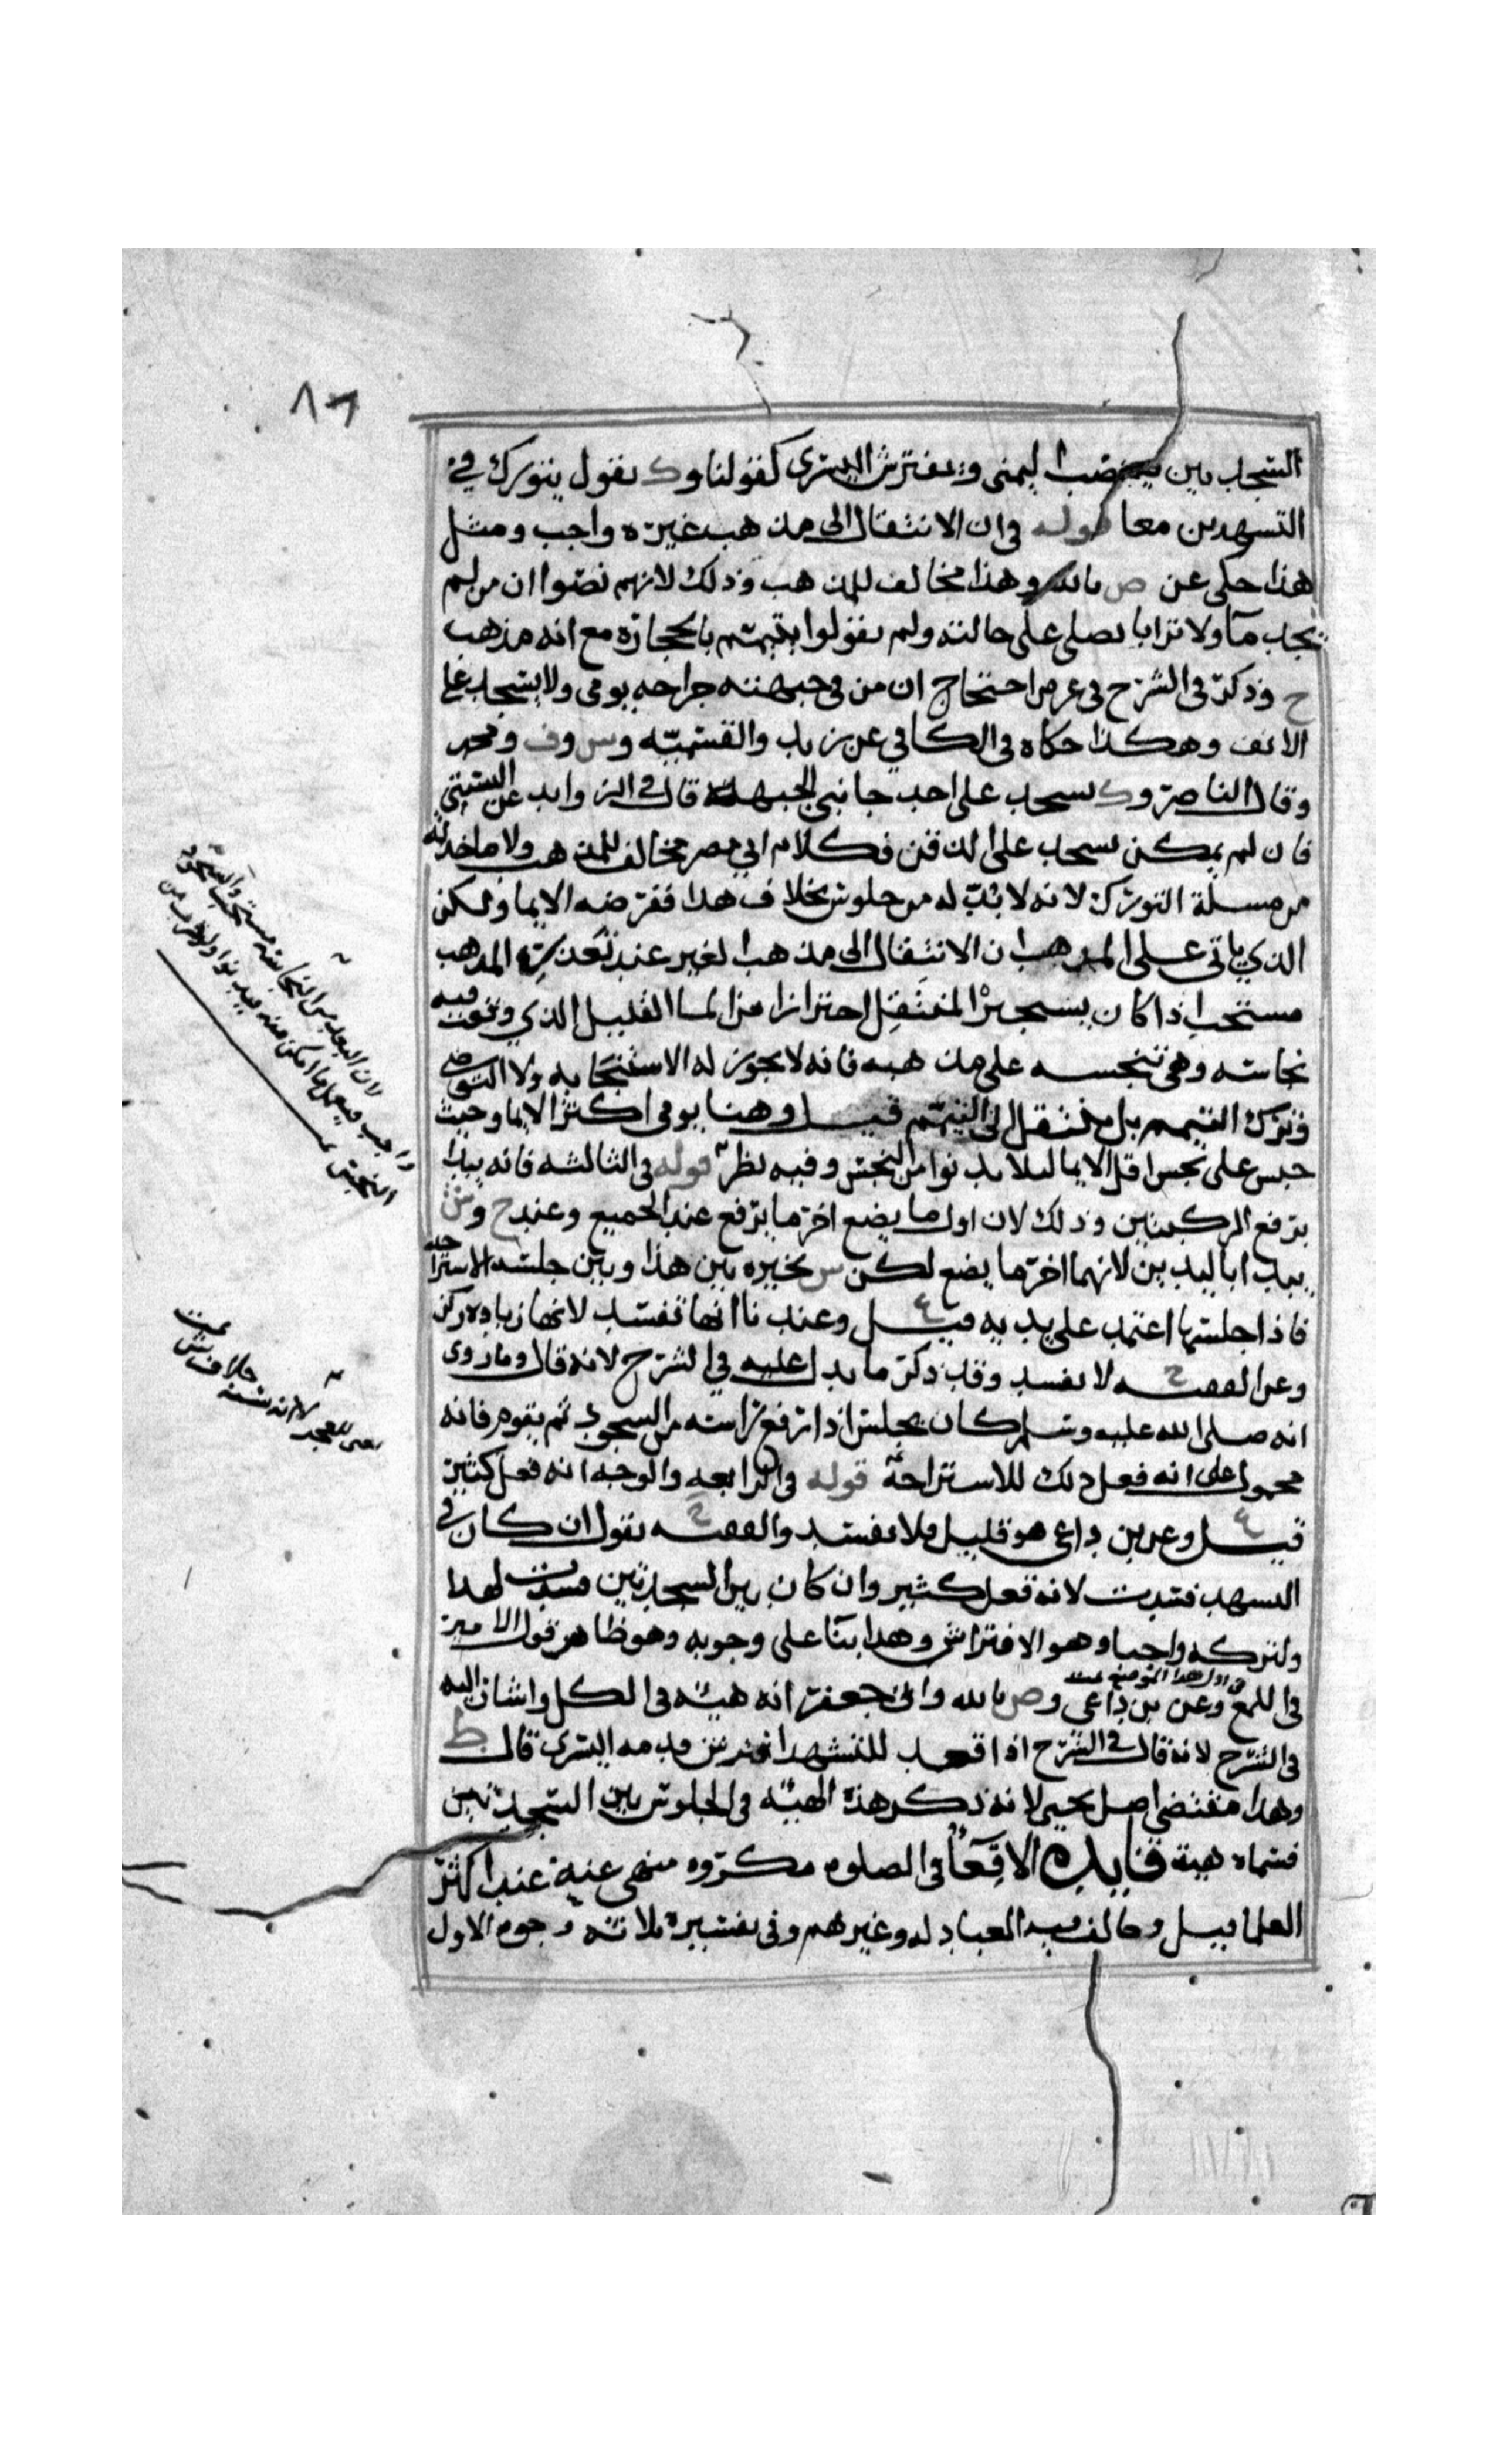 ٨٦
السجدتين ينصب اليمنى ويفترش اليسرى كقولنا وك يقول يتورك في
التشهدين معا قوله في ان الانتقال الى مذهب غيره واجب ومثل
هذا حكى عن ص بالله وهذا مخالف للمذهب وذلك لانهم نصوا ان من لم
يجد مآ ولا ترابا يصلي على حالته ولم يقولوا يتيمم بالحجارة مع انه مذهب
ح وذكر في الشرح في عرض احتجاج ان من في جبهته جراحه يومي ولا يسجد على
الانف وهكذا حكاه في الكافي عن زيد والقسميه وس وف ومحمد
وقال الناصر وك يسجد على احد جانبي الجبهة قال في الزوايد عن
فان لم يمكن يسجد على الذقن فكلام ابي مضر مخالف للمذهب ولا ماخذ له
من مسلة التورك لانه لا بد له من جلوس بخلاف هذا ففرضه الايما ولكن
الذي ياتي على المذهب ان الانتقال الى مذهب الغير عند تعذر المذهب
مستحب اذا كان يستجيز المنتقل احترازا من الما القليل الذي وقعت فيه
نجاسته وهي تنجسه على مذهبه فانه لا يجوز له الاستنجا به ولا التوضي
وترك التيمم بل ينتقل الى التيمم قيل وهنا يومي اكثر الايما وحيث
حبس على نجس اقل الايما ليلا يدنوا من النجس وفيه نظر قوله في الثالثه فانه يبدا
برفع الركبتين وذلك لان اول ما يضع اخر ما يرفع عند الجميع وعند ح وش
يبدا باليدين لانهما اخر ما يضع لكن س يخيره بين هذا وبين جلسه الاستراحه
فاذا جلسها اعتمد على يديه قيل ع وعندنا انها تفسد لانها زياده ركن
وعن الفقيه ح لا تفسد وقد ذكر ما يدل عليه في الشرح لانه قال وما روى
انه صلى الله عليه وسلم كان يجلس اذا رفع راسه من السجود ثم يقوم فانه
محمول على انه فعل ذلك للاستراحة قوله في الرابعه والوجه انه فعل كثير
قيل ع وعن بن داعي هو قليل فلا تفسد والفقيه ح يقول ان كان في
التشهد فسدت لانه فعل كثير وان كان بين السجدتين فسدت لهذا
ولتركه واجبا وهو الافتراش وهذا بنآ على وجوبه وهو ظاهر قول الامير
في اللمع وعن بن داعي وص بالله وابي جعفر انه هيئه في الكل واشار اليه
في الشرح لانه قال في الشرح اذا قعد للتشهد افترش قدمه اليسرى قال ط
وهذا مقتضى اصل يحيى لانه ذكر هذه الهيئه في الجلوس بين السجدتين
فسماه هيئة فايده الاقعآ في الصلوه مكروه منهي عنه عند اكثر
العلما قيل وخالف فيه العبادله وغيرهم وفي تفسيره ثلاثة وجوه الاول
لان البعد من النجاسه مستحب والسجود
واجب فيعمل ما امكن منه فيدنوا ولو قرب من
النجس